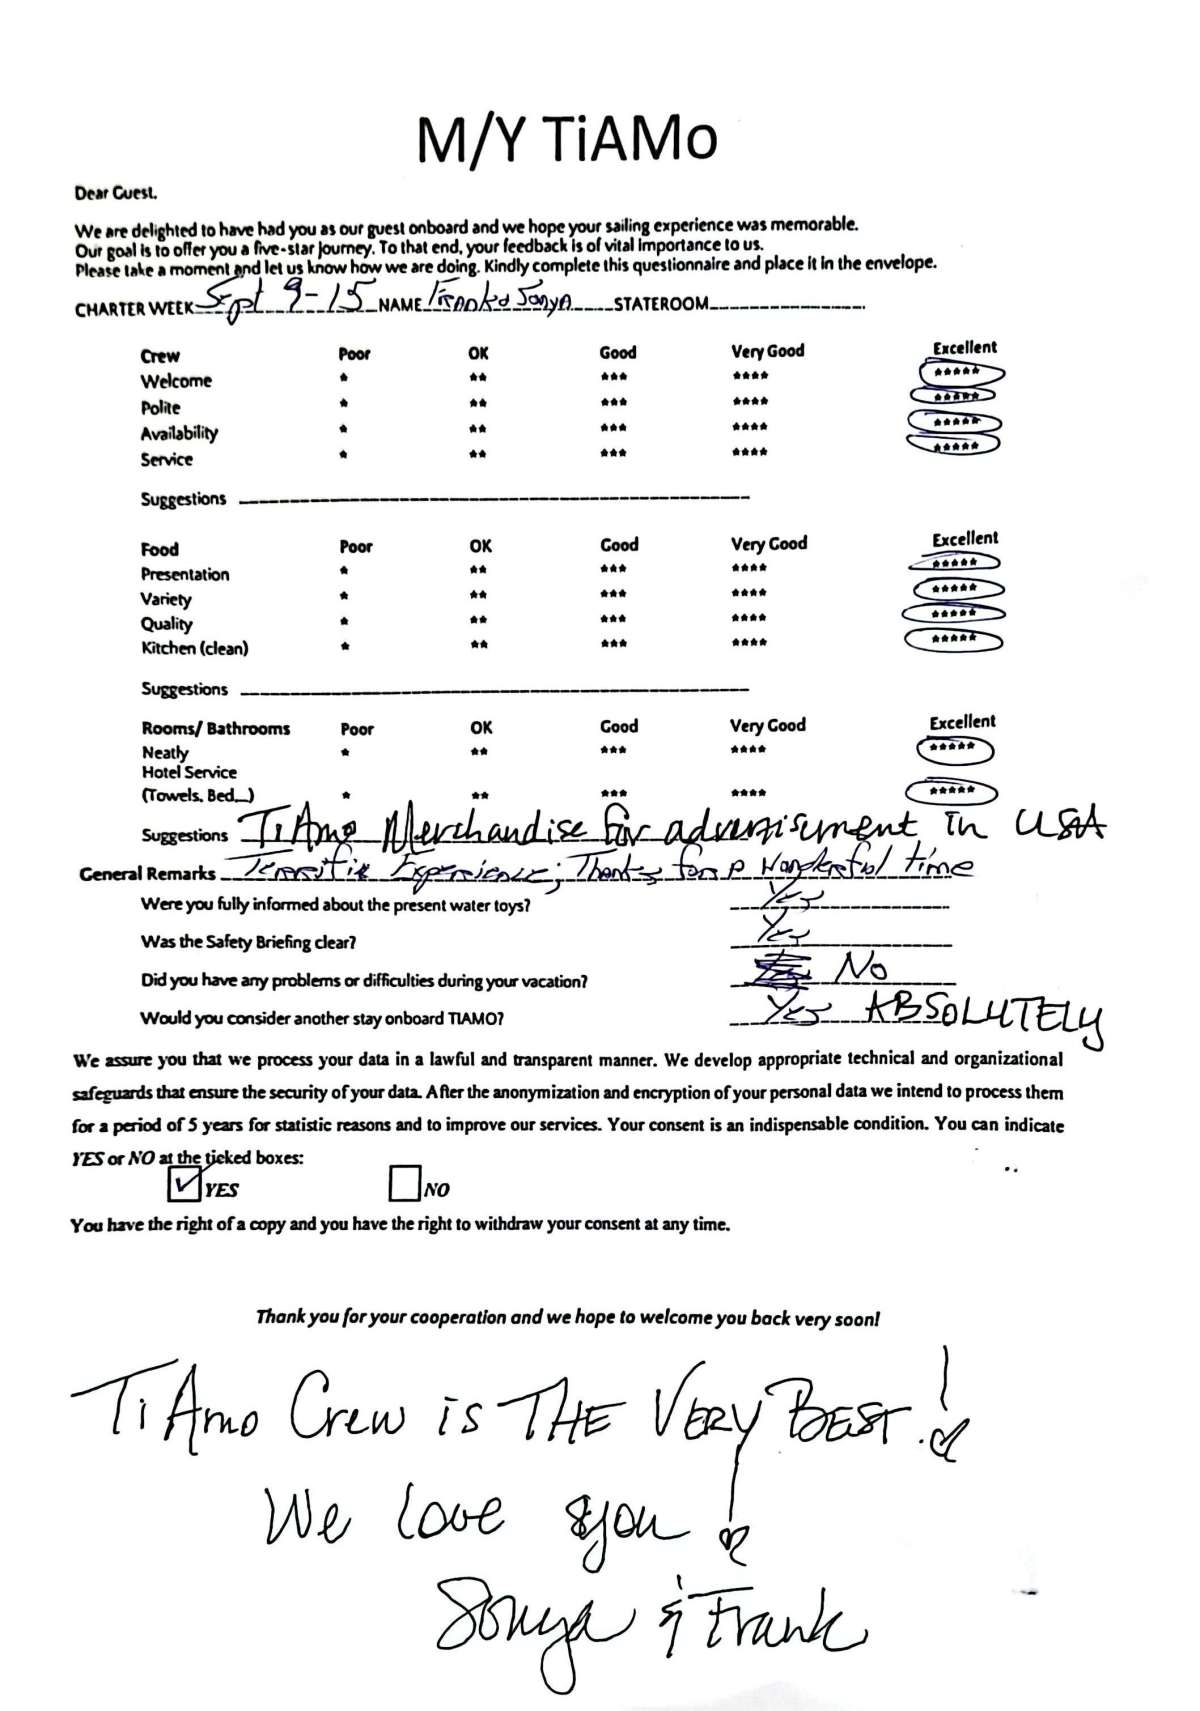 M/Y TiAMo
Dear Guest.
We are delighted to have had you as our guest onboard and we hope your sailing experience was memorable.
Our goal is to offer you a five-star journey. To that end, your feedback is of vital importance to us.
Please take a moment and let us know how we are doing. Kindly complete this questionnaire and place it in the envelope.
CHARTER WEEK Sept 9-15 NAME Frank & Sonya STATEROOM
Crew Poor OK Good Very Good Excellent
Welcome * ** *** **** *****
Polite * ** *** **** *****
Availability * ** *** **** *****
Service * ** *** **** *****
Suggestions
Food Poor OK Good Very Good Excellent
Presentation * ** *** **** *****
Variety * ** *** **** *****
Quality * ** *** **** *****
Kitchen (clean) * ** *** **** *****
Suggestions
Rooms/ Bathrooms Poor OK Good Very Good Excellent
Neatly * ** *** **** *****
Hotel Service
(Towels. Bed...) * ** *** **** *****
Suggestions TiAmo Merchandise for advertisment in USA
General Remarks Terrific Experience; Thanks for a wonderful time
Were you fully informed about the present water toys? Yes
Was the Safety Briefing clear? Yes
Did you have any problems or difficulties during your vacation? No
Would you consider another stay onboard TIAMO? Yes ABSOLUTELY
We assure you that we process your data in a lawful and transparent manner. We develop appropriate technical and organizational
safeguards that ensure the security of your data. After the anonymization and encryption of your personal data we intend to process them
for a period of 5 years for statistic reasons and to improve our services. Your consent is an indispensable condition. You can indicate
YES or NO at the ticked boxes:
YES NO
You have the right of a copy and you have the right to withdraw your consent at any time.
Thank you for your cooperation and we hope to welcome you back very soon!
TiAmo Crew is THE VERY BEST!
We love you!
Sonya & Frank